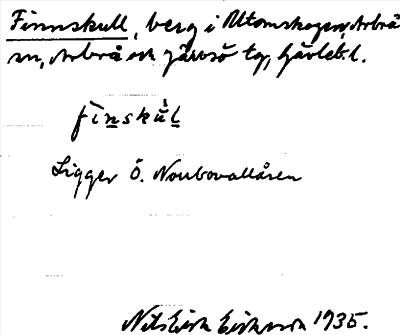 Finnskull, berg i Utomskogen, Arbrå
sn, Arbrå och Järvsö tg, Gävleb. l.
finskul
Ligger Ö. Norrbovallåsen
Nils Erik Eriksson 1935.